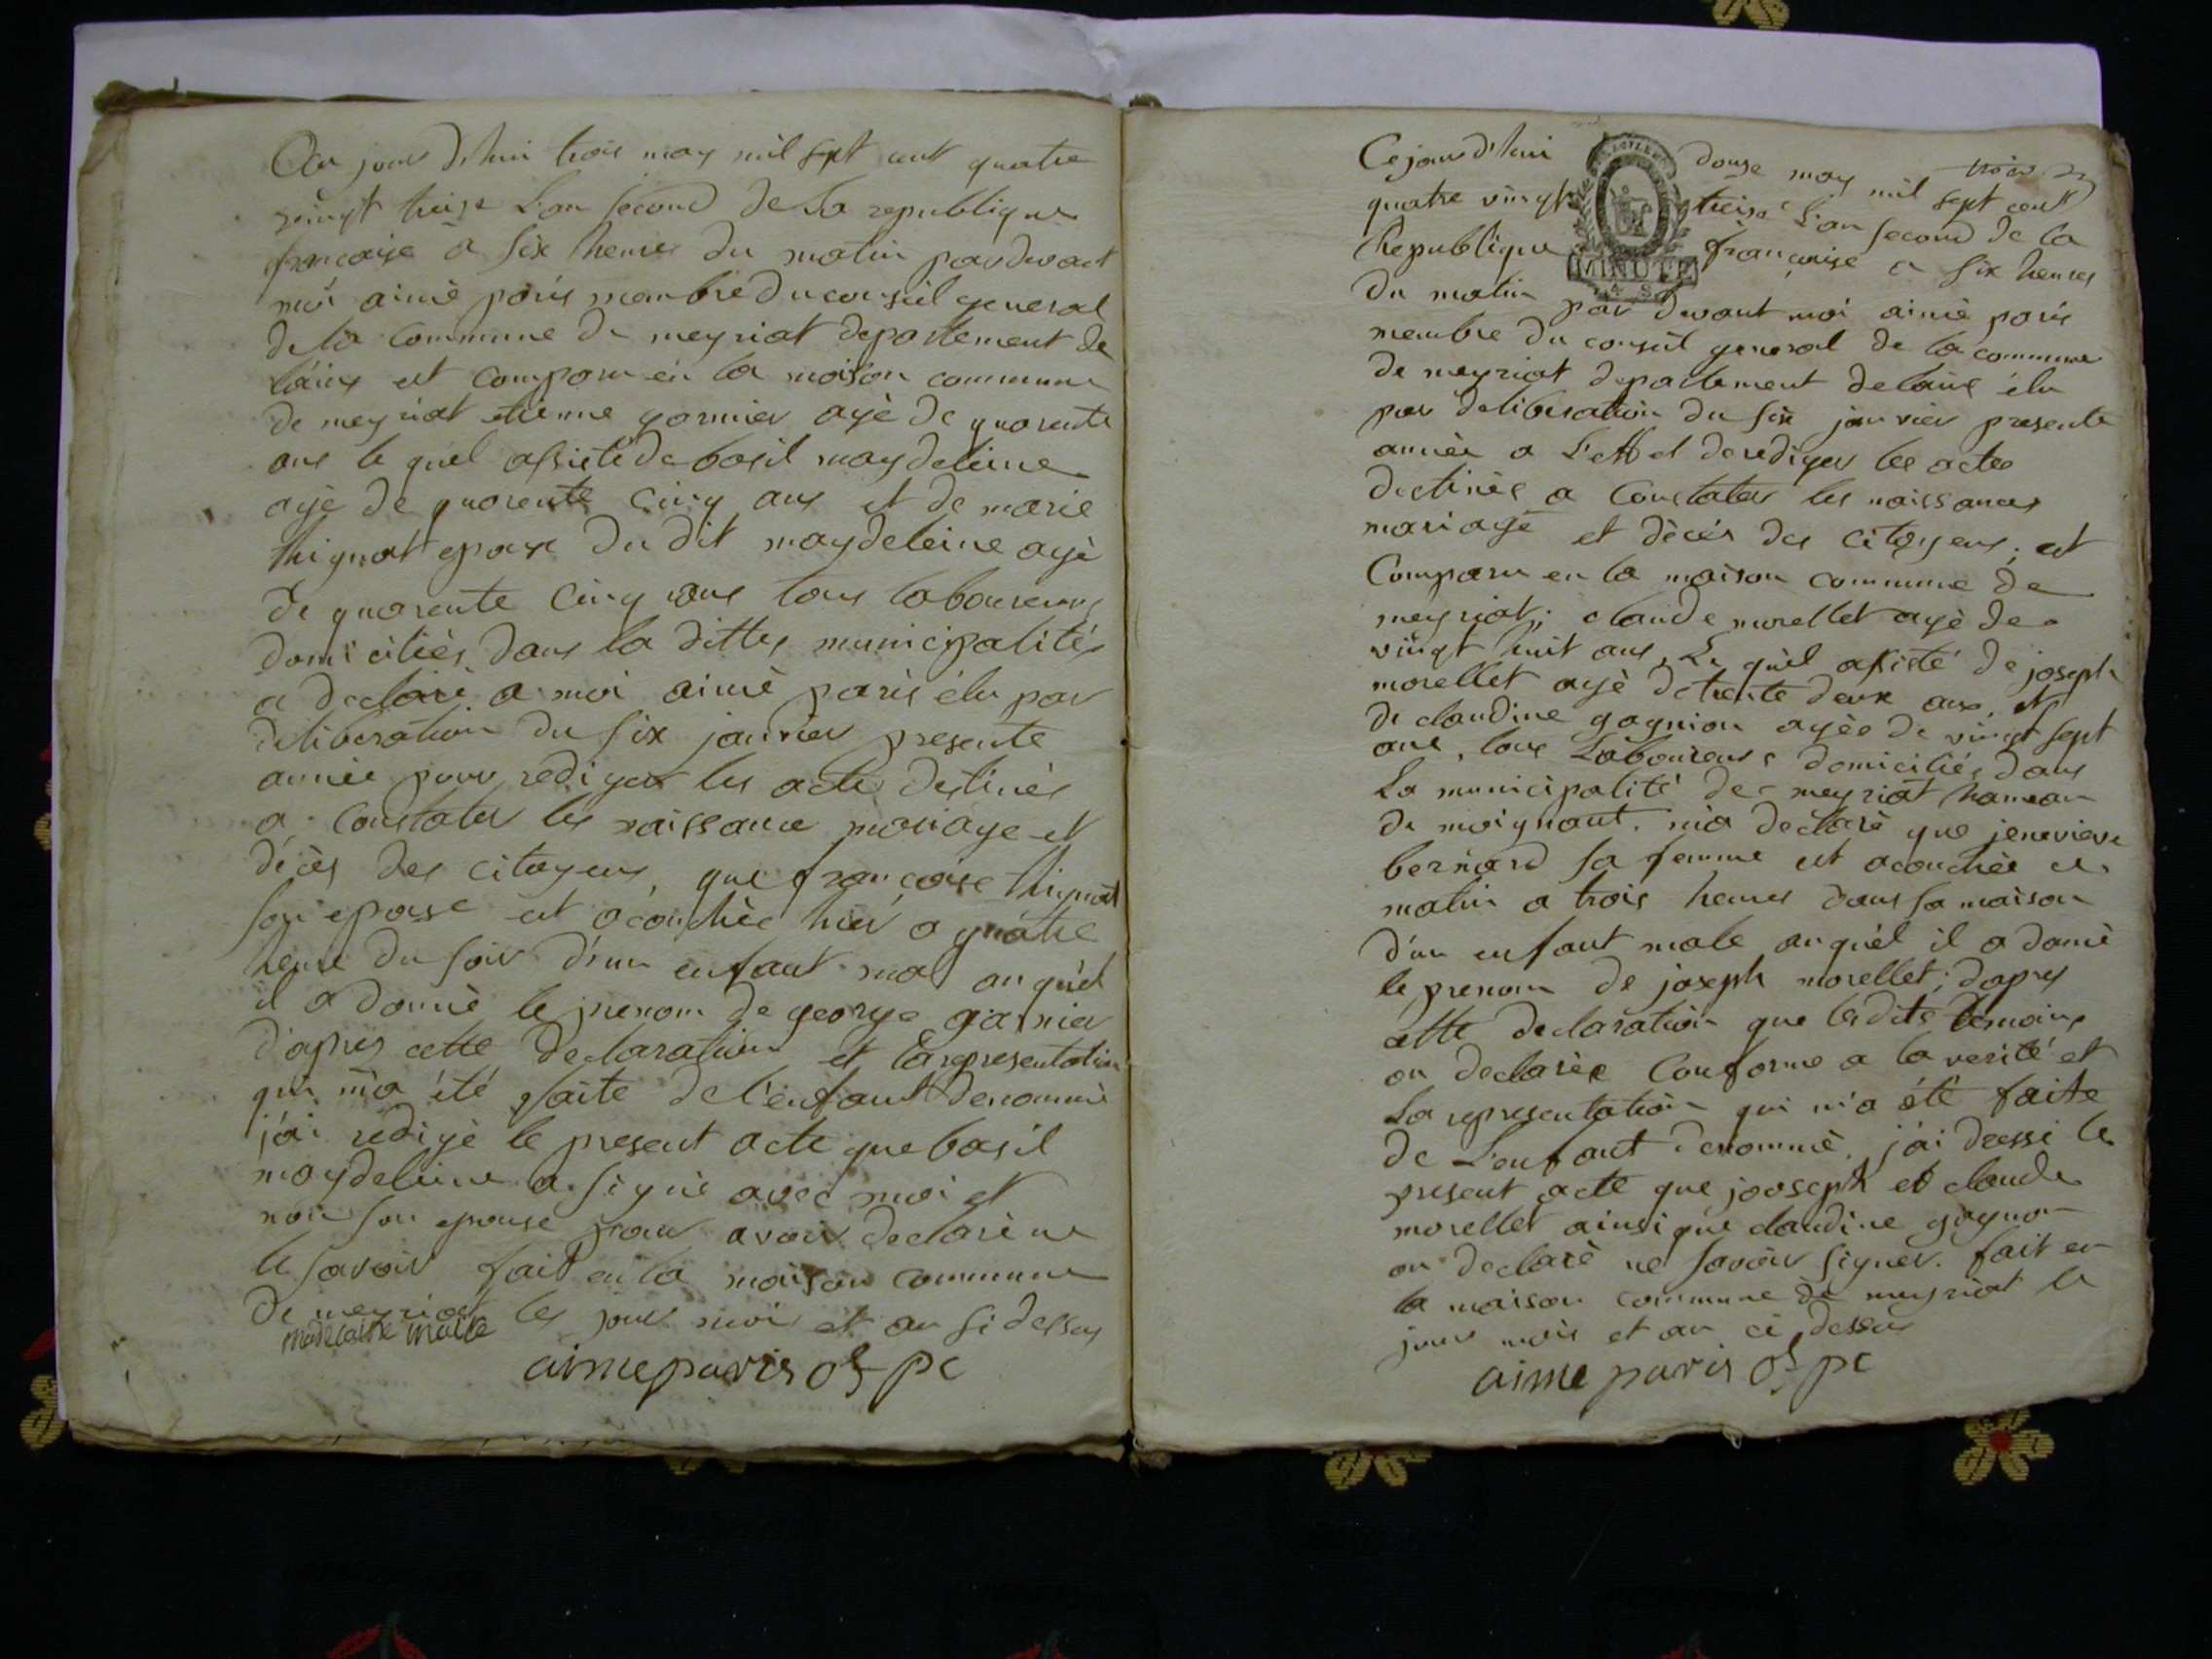 Au jour d'hui trois may mil sept cent quatre
vingt treize L'an second de La republique
francaise a six heures du matin par devant
moi aimé paris membre du conseil general
de la Commune de meyriat departement de
l'ains est Comparu en la maison commune
de meyriat etienne garnier agé de quarente
ans le quel assisté de basil maydeleine
agé de quarente cinq ans et de marie
thignat epouse du dit maydeleine agé
de quarente cinq ans tous laboureurs
domiciliés dans la dittes municipalités
a declaré a moi aimé paris élu par
deliberation du six janvier presente
année pour rediger les acte destinés
a Constater les naissance mariage et
décès des citoyens, que francoise thignat
son epouse est acouchée hier a quatre
heure du soir d'un enfant mal au quel
il a donné le prenom de george garnier
d'apres cette declaration et la representation
qui m'a été faite de l'enfant denommé
j'ai redigé le present acte que basil
maydeleine a signé avec moi et
non son epouse pour avoir declaré ne
le savoir fait en la maison commune
de meyriat les jour mois et an si dessus
madelaine
aime paris of pc
Ce jour d'hui douze may mil sept cent
quatre vingt treize L'an second de la
MINUTE
4 S
Republique française a six heures
du matin par devant moi aimé paris
membre du conseil general de la commune
de meyriat departement de lains élu
par deliberation du six janvier presente
année a L'effet de rediger les actes
destinés a Constater les naissances
mariage et décès des citoyens; est
Comparu en la maison commune de
meyriat; claude morellet agé de
vingt huit ans, Le quel assisté de joseph
morellet agé de trente deux ans, et
de claudine gagnion agée de vingt sept
ans, tous Laboureurs domiciliés dans
La municipalité de meyriat hameau
de moignant. m'a declaré que jenevieve
bernard sa femme est acouchée ce
matin a trois heures dans sa maison
d'un enfant male au quel il a donné
le prenom de joseph morellet; d'apres
cette declaration que les dits temoins
on declarée Conforme a la verité et
La representation qui m'a été faite
de L'enfant denommé, j'ai dressé le
present acte que jooseph et claude
morellet ainsi que claudine gagnon
on declaré ne savoir signer. fait en
la maison commune de meyriat le
jour mois et an ci dessus
aime paris of pc